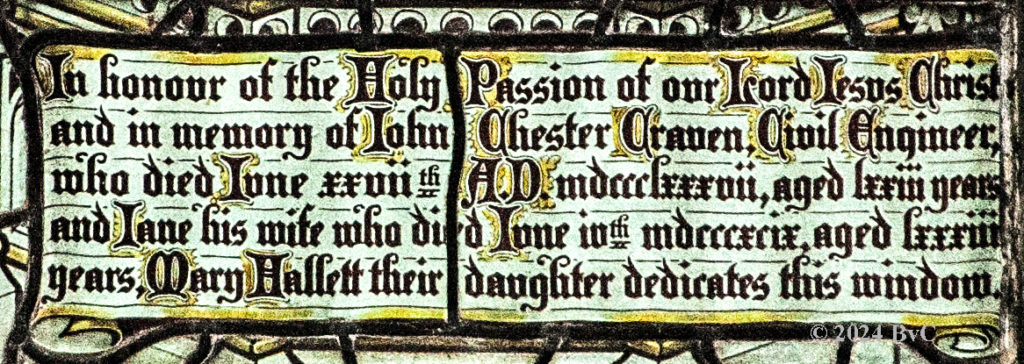 In honour of the Holy Passion of our Lord Iesus Christ
and in memory of Iohn Chester Craven, Civil Engineer,
who died Iune xxvii th A.D. mdccclxxxvii, aged lxxiii years
and Iane his wife who died Iune iv th mdcccxcix, aged lxxxiii
years, Mary Hallett their daughter dedicates this window.
© 2024 BvC